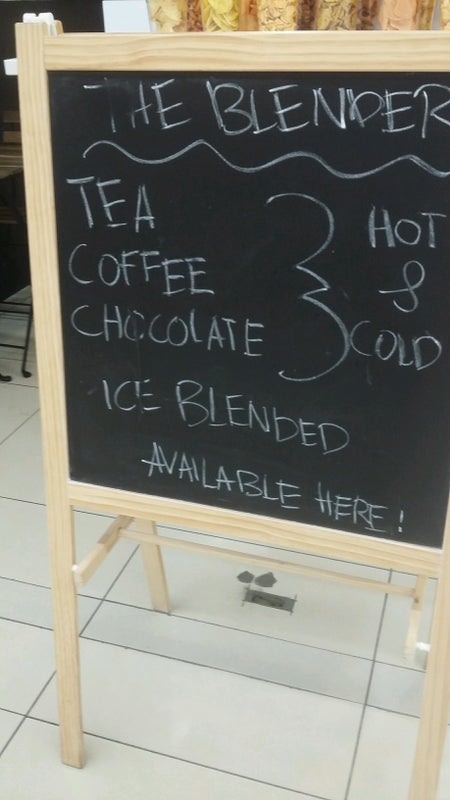 THE BLENDER
TEA
COFFEE
CHOCOLATE
HOT
&
COLD
ICE BLENDED
AVAILABLE HERE!